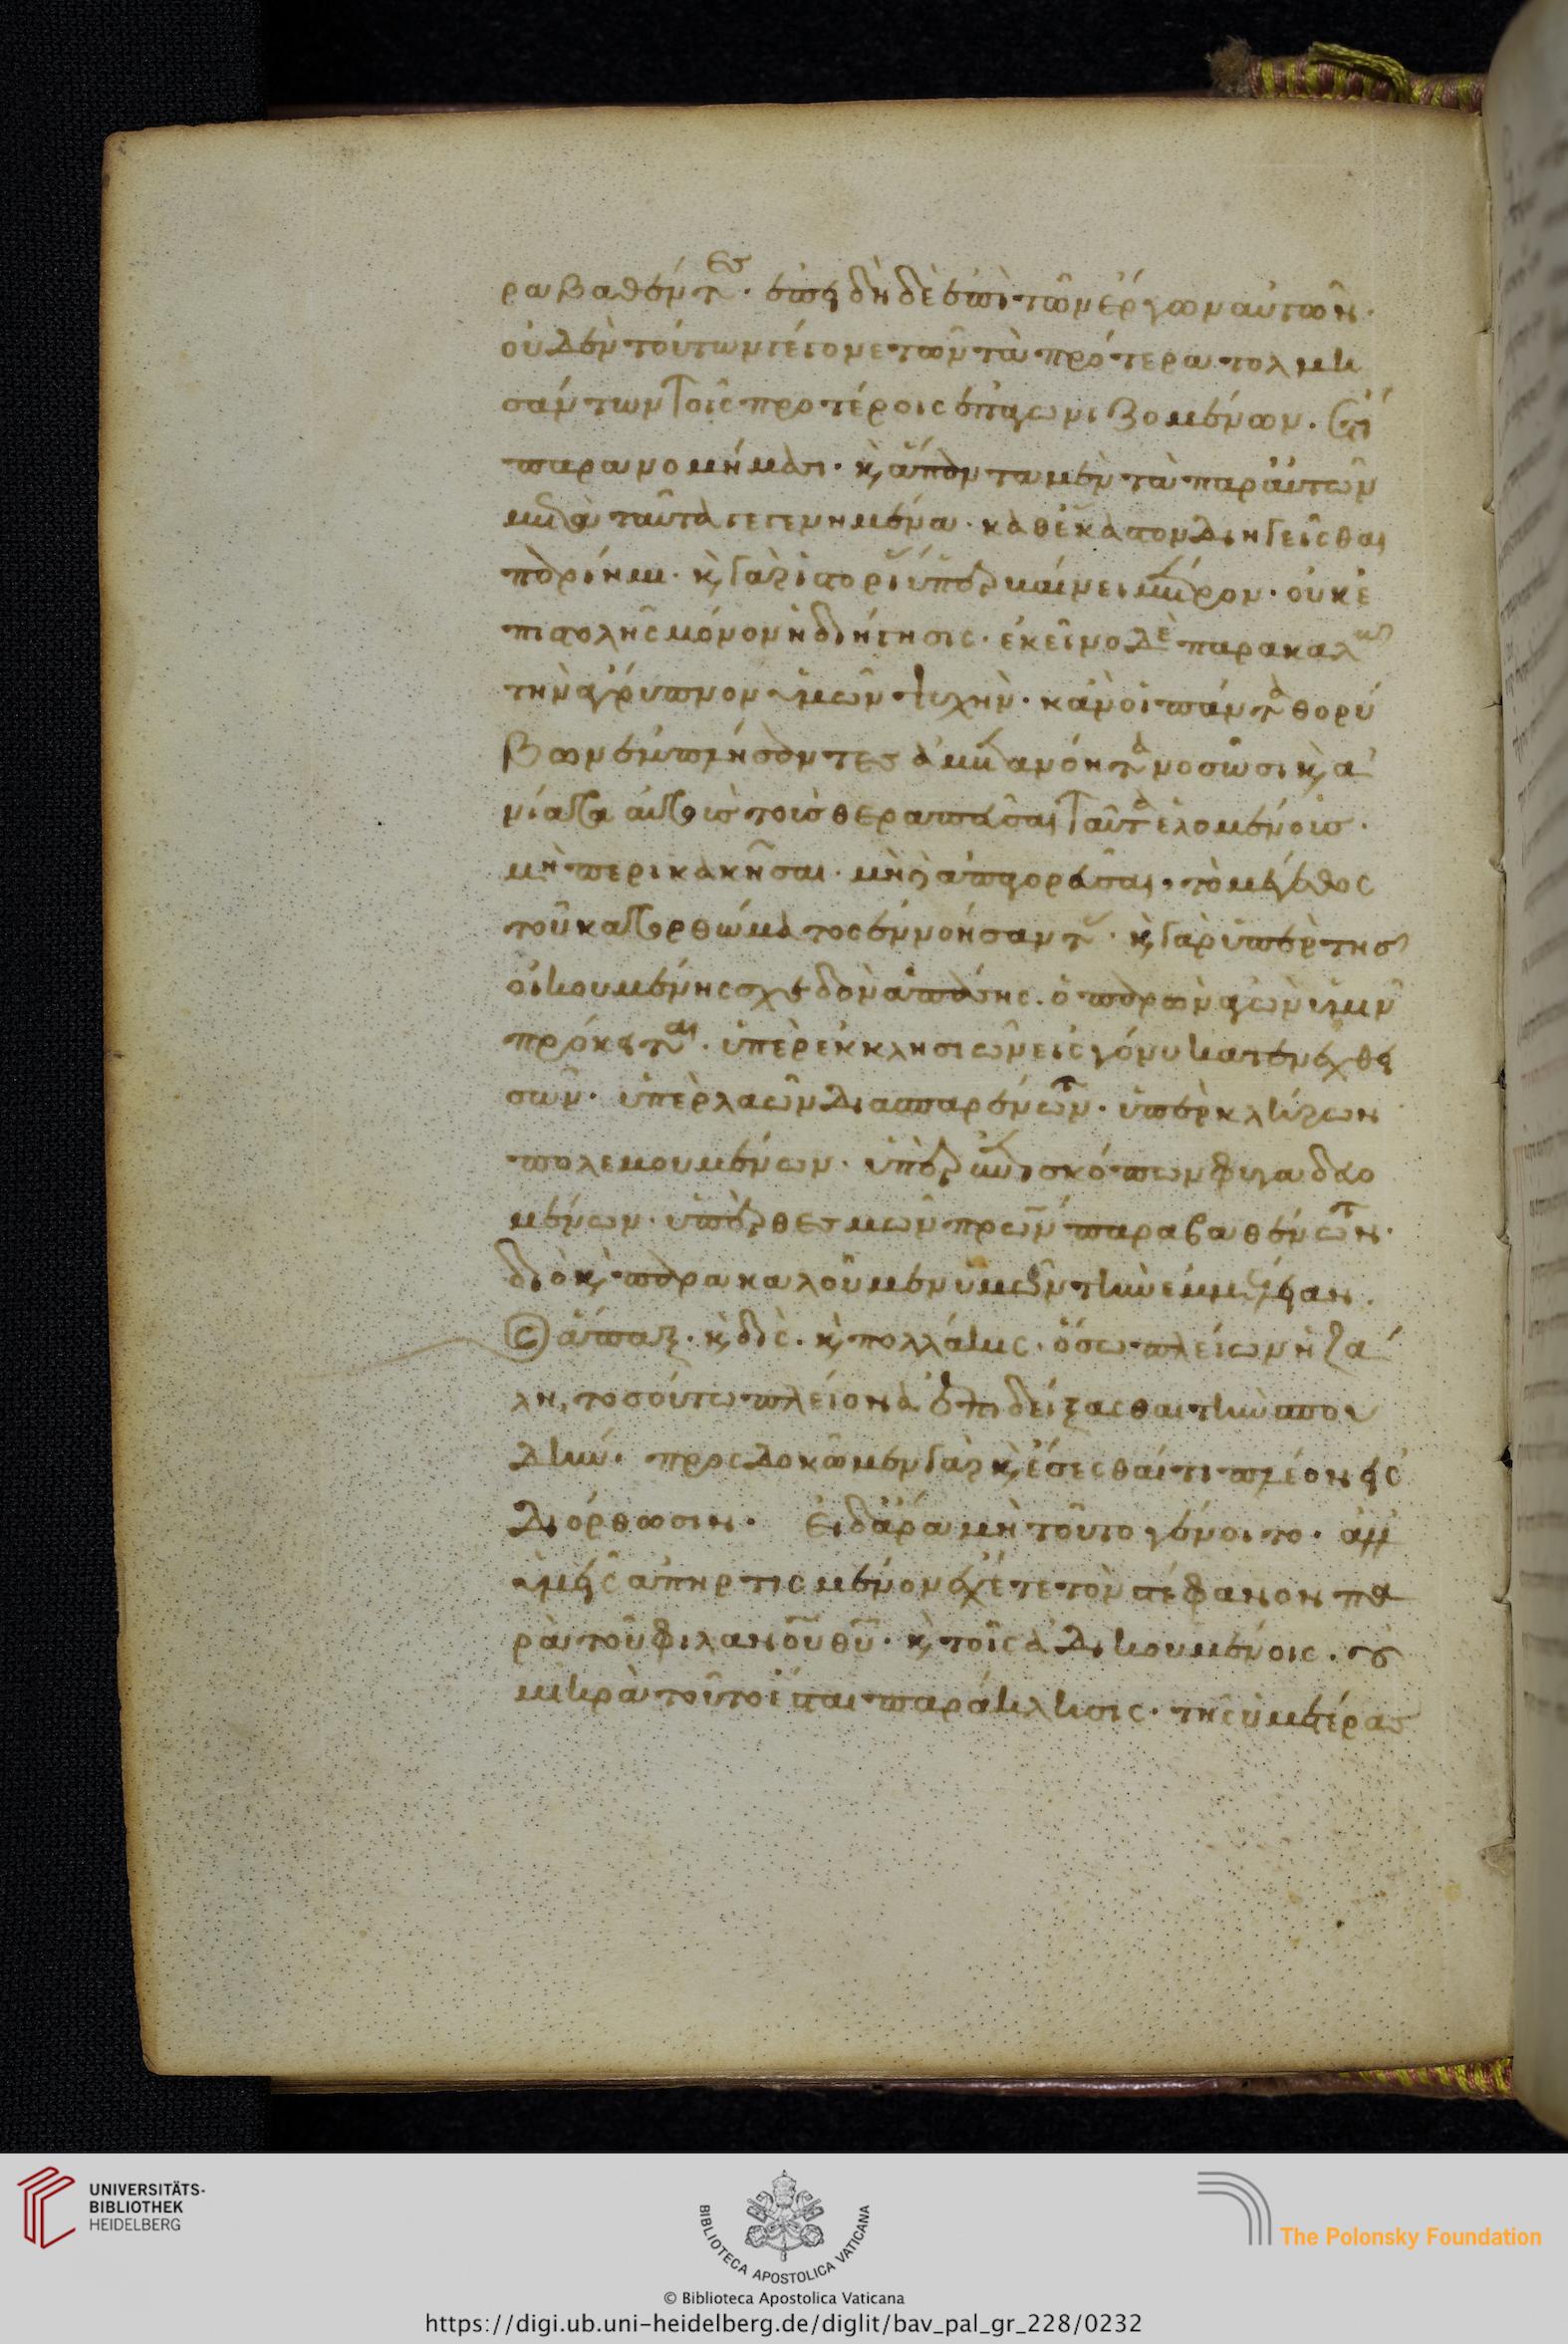 ραβαθέντες. ἐπειδὴ δὲ ἐπὶ τῶν ἔργων αὐτῶν.
οὐδὲν τούτων γέγονε τῶν τὰ πρότερα τολμη
σάντων τοῖς προτέροις ἐπαγωνιζομένων. ἔτι
παρανομήμασι. καὶ ἅπαντα μὲν τὰ παρ' αὐτῶν
μετὰ ταῦτα γεγενημένα. καθέκαστον διηγεῖσθαι
παρίημι. καὶ γὰρ ἱστορίαν ὑπερβαίνει μακρον. οὐκ ἐ
πιστολῆς μόνον ἡ διήγησις. ἐκεῖνο δὲ παρακαλῶ
τὴν ἄγρυπνον ὑμῶν ψυχὴν. κἀν οἱ πάντα θορύ
βων ἐμπλήσαντες ἀμετανόητα νοσῶσι καὶ ἀ
νίατα αὐτοῖς τοῖς θεραπεῦσαι ταῦτα ἑλομένοις.
μὴ περικακῆσαι. μὴδὲ ἀπαγορεῦσαι. τὸ μέγεθος
τοῦ κατορθώματος ἐννοήσαντας. καὶ γὰρ ὑπὲρ τῆς
οἰκουμένης σχεδὸν ἁπάσης. ὁ παρὼν ἀγὼν ὑμῖν
πρόκειται. ὑπὲρ ἐκκλησιῶν εἰς γόνυ κατενεχθει
σῶν. ὑπὲρ λαῶν διασπαρέντων. ὑπὲρ κλήρων
πολεμουμένων. ὑπὲρ ἐπισκόπων φυγαδευο
μένων. ὑπὲρ θεσμῶν πρων παραβαθέντων.
διὸ καὶ παρακαλοῦμεν ὑμῶν τὴν ἐμμέλειαν.
ἅπαξ. καὶ δὶς. καὶ πολλάκις. ὅσω πλείων ἡ ζά
λη, τοσούτω πλείονα ἐπιδείξασθαι τὴν σπου
δήν. προσδοκῶμεν γὰρ καὶ ἔσεσθαί τι πλέον εἰς
διόρθωσιν. εἰ δ' ἄρα μὴ τοῦτο γένοιτο. ἀλλ'
ὑμεῖς ἀπηρτισμένον ἔχετε τὸν στέφανον πα
ρὰ τοῦ φιλανου θυ. καὶ τοῖς ἀδικουμένοις. οὐ
μικρὰ τοῦτο ἔσται παράκλησις. τῆς ὑμετέρας
UNIVERSITÄTS-
BIBLIOTHEK
HEIDELBERG
BIBLIOTECA APOSTOLICA VATICANA
The Polonsky Foundation
© Biblioteca Apostolica Vaticana
https://digi.ub.uni-heidelberg.de/diglit/bav_pal_gr_228/0232